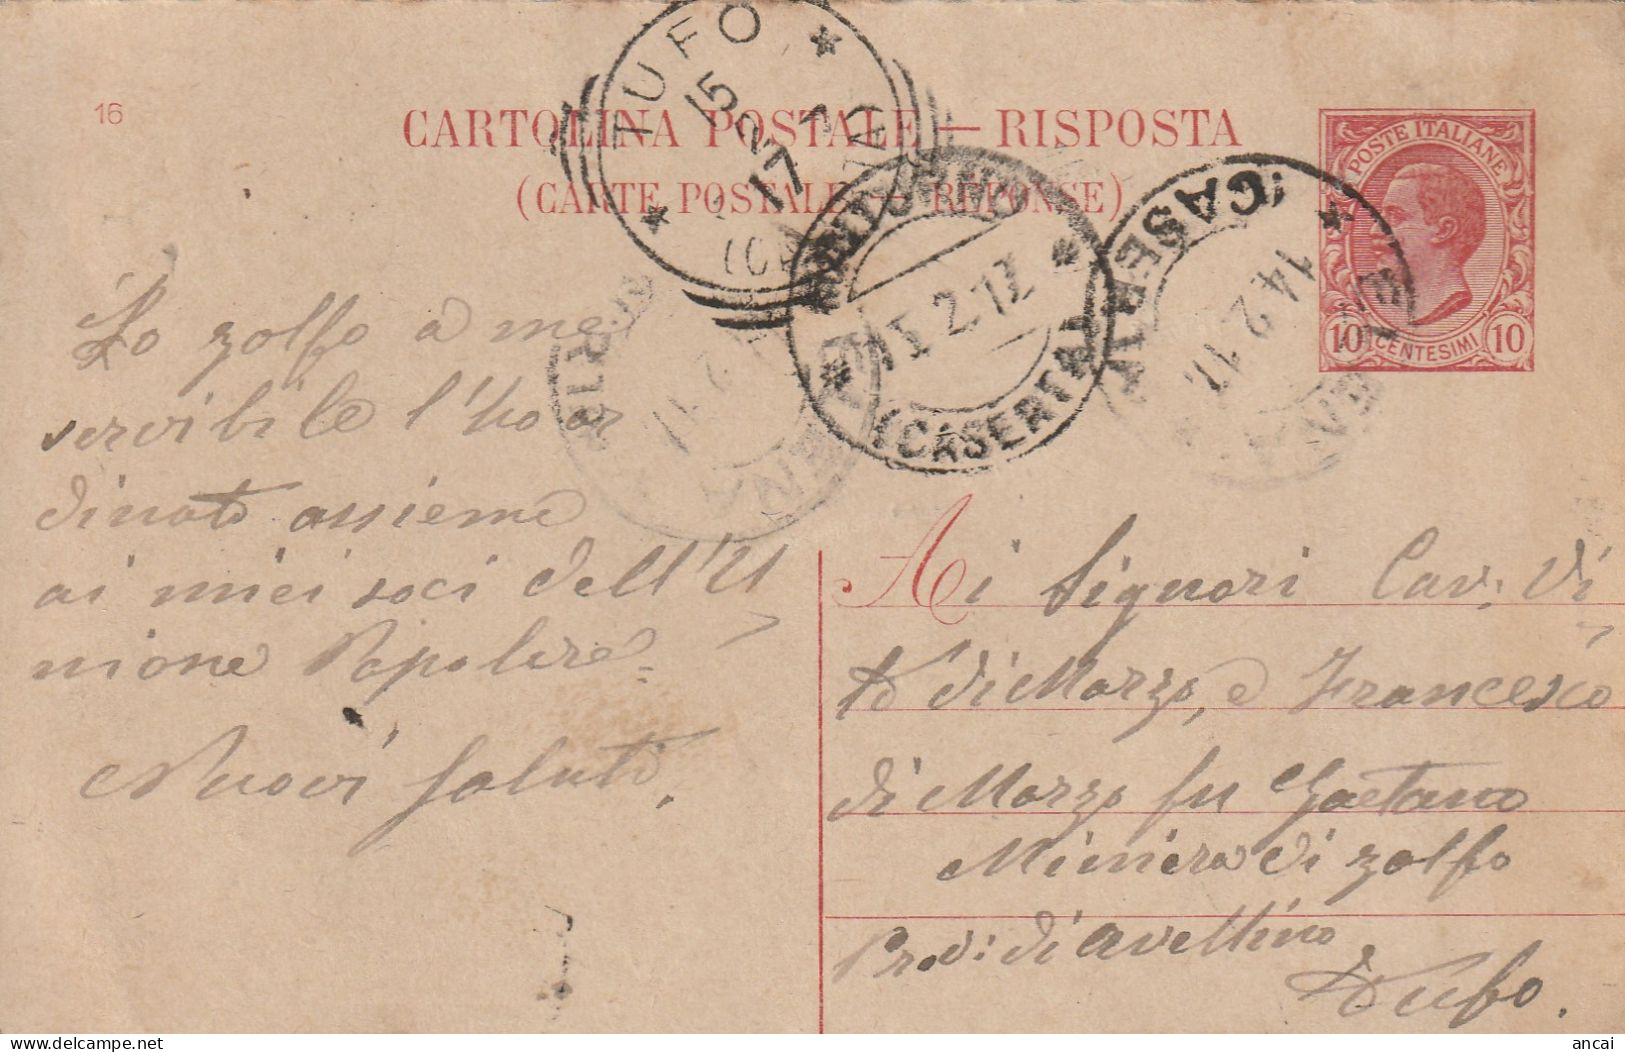 16
CARTOLINA POSTALE — RISPOSTA
(CARTE POSTALE — RÉPONSE)
POSTE ITALIANE
10 CENTESIMI 10
TUFO
15 2 17
15.2.17
(CASERTA)
14.2.17
(CASERTA)
Lo zolfo a me
servibile l'ho or
dinato assieme
ai miei soci dell'U
nione Popolare =
Nuovi saluti.
Ai Signori Cav. Di
di Marzo, e Francesco
di Marzo fu Gaetano
Miniera di zolfo
Prov: di Avellino
Tufo.
ancai